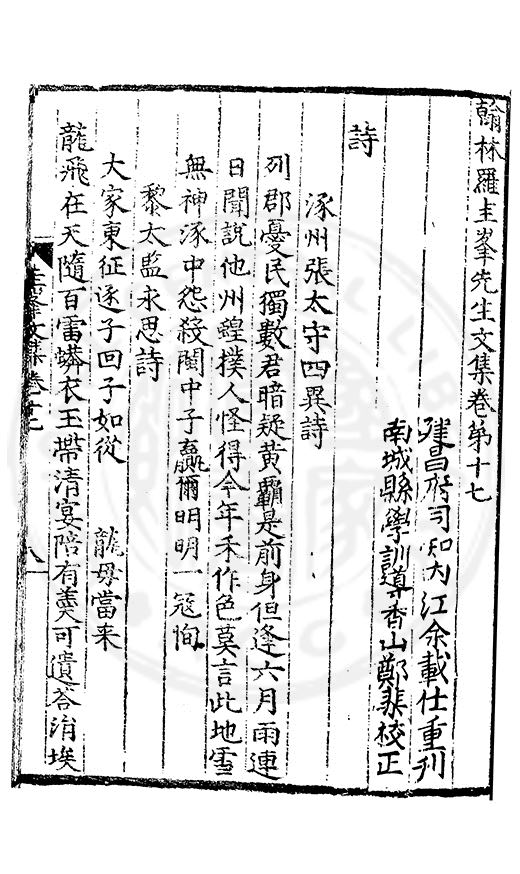 翰林羅圭峯先生文集卷第十七
建昌府同知內江余載仕重刊
南城縣學訓導香山鄭棐校正
詩
涿州張太守四異詩
列郡憂民獨數君暗疑黃霸是前身但逢六月雨連
日聞說他州蝗撲人怪得今年禾作色莫言此地雪
無神涿中怨殺閩中子贏爾明明一冦恂
黎太監永思詩
大家東征逐子回子如從 龍毋當来
龍飛在天隨百雷蟒衣玉帶清宴陪有羹可遺荅涓埃
圭峯文集卷十七